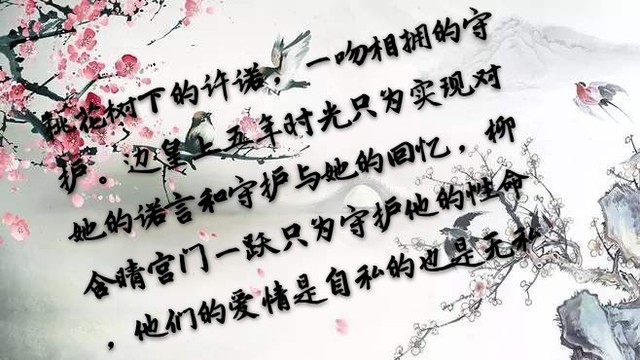 桃花树下的许诺，一吻相拥的守
护。边皇上五年时光只为实现对
她的诺言和守护与她的回忆，柳
含晴宫门一跃只为守护他的性命
，他们的爱情是自私的也是无私